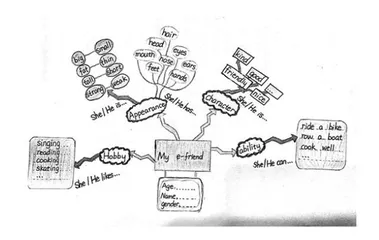 hair
head
eyes
mouth
nose
ears
feet
hands
big
small
fat
thin
tall
short
strong
weak
She/He is...
She/He has...
Appearance
kind
good
friendly
...
nice
Character
She/He is...
singing
reading
cooking
skating
...
Hobby
She/He likes...
My e-friend
ability
She/He can...
ride a bike
row a boat
cook well
...
Age......
Name......
gender......